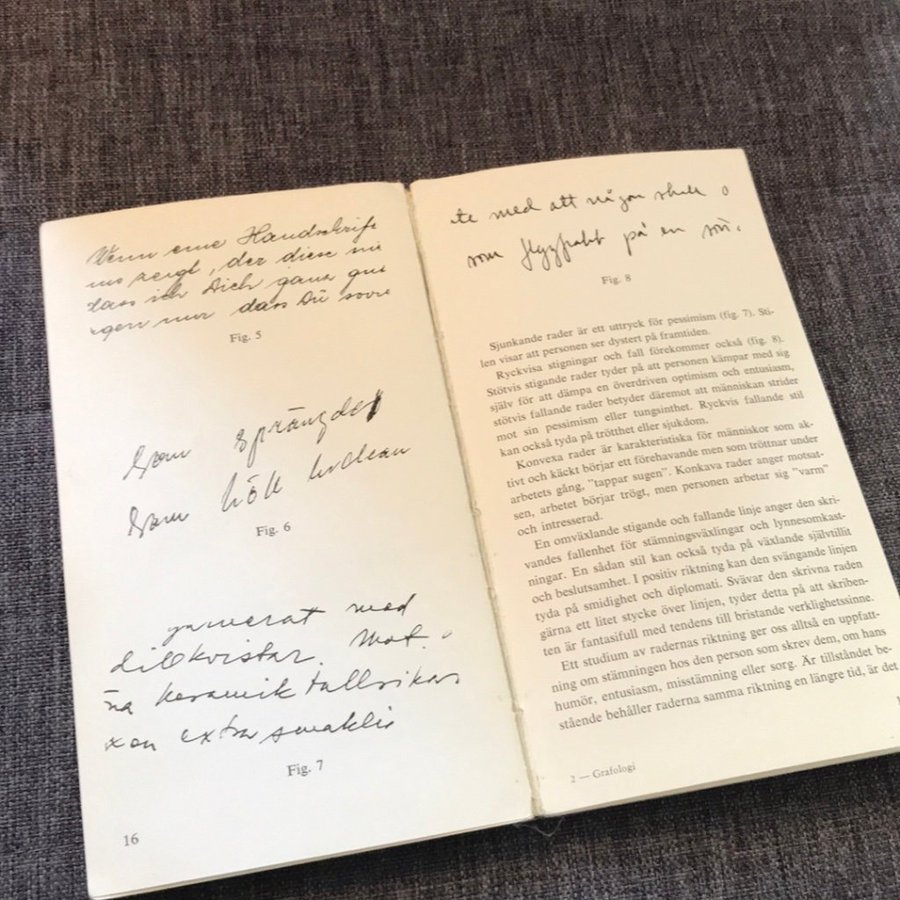 Wenn eine Handschrift
uns zeigt, der diese nie
dass ich Dich ganz gut
egen nur dass Du sowe
Fig. 5
som sprängdes
som höll
Fig. 6
garnerat med
dillkvistar. Mot.
na keramiktallrikar
xen extra smaklig
Fig. 7
16
te med att någon skulle
som flygfrakt på en
Fig. 8
Sjunkande rader är ett uttryck för pessimism (fig. 7). Sti-
len visar att personen ser dystert på framtiden.
Ryckvisa stigningar och fall förekommer också (fig. 8).
Stötvis stigande rader tyder på att personen kämpar med sig
själv för att dämpa en överdriven optimism och entusiasm,
stötvis fallande rader betyder däremot att människan strider
mot sin pessimism eller tungsinthet. Ryckvis fallande stil
kan också tyda på trötthet eller sjukdom.
Konvexa rader är karakteristiska för människor som ak-
tivt och käckt börjar ett förehavande men som tröttnar under
arbetets gång, "tappar sugen". Konkava rader anger motsat-
sen, arbetet börjar trögt, men personen arbetar sig "varm"
och intresserad.
En omväxlande stigande och fallande linje anger den skri-
vandes fallenhet för stämningsväxlingar och lynnesomkast-
ningar. En sådan stil kan också tyda på växlande självtillit
och beslutsamhet. I positiv riktning kan den svängande linjen
tyda på smidighet och diplomati. Svävar den skrivna raden
gärna ett litet stycke över linjen, tyder detta på att skriben-
ten är fantasifull med tendens till bristande verklighetssinne.
Ett studium av radernas riktning ger oss alltså en uppfatt-
ning om stämningen hos den person som skrev dem, om hans
humör, entusiasm, misstämning eller sorg. Är tillståndet be-
stående behåller raderna samma riktning en längre tid, är det
2 — Grafologi